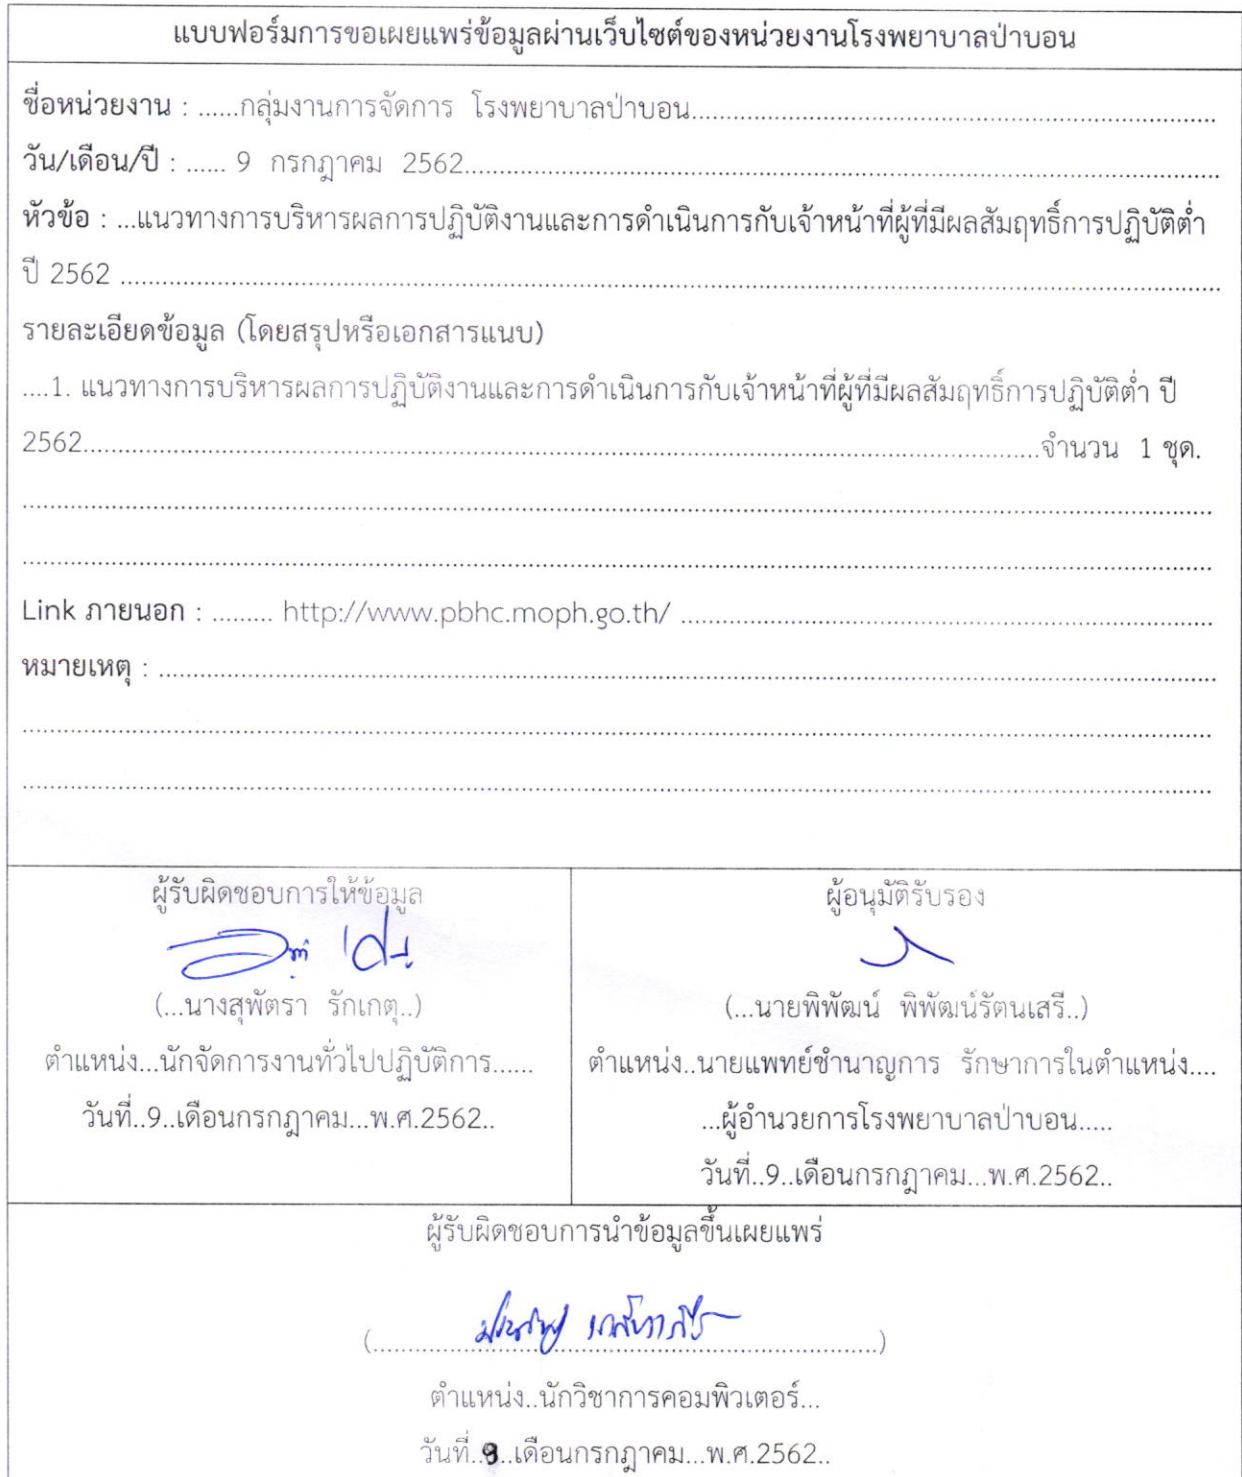 แบบฟอร์มการขอเผยแพร่ข้อมูลผ่านเว็บไซต์ของหน่วยงานโรงพยาบาลป่าบอน
ชื่อหน่วยงาน : ......กลุ่มงานการจัดการ โรงพยาบาลป่าบอน......
วัน/เดือน/ปี : ...... 9 กรกฎาคม 2562......
หัวข้อ : ...แนวทางการบริหารผลการปฏิบัติงานและการดำเนินการกับเจ้าหน้าที่ผู้ที่มีผลสัมฤทธิ์การปฏิบัติต่ำ
ปี 2562 ......
รายละเอียดข้อมูล (โดยสรุปหรือเอกสารแนบ)
....1. แนวทางการบริหารผลการปฏิบัติงานและการดำเนินการกับเจ้าหน้าที่ผู้ที่มีผลสัมฤทธิ์การปฏิบัติต่ำ ปี
2562......จำนวน 1 ชุด.
Link ภายนอก : ......... http://www.pbhc.moph.go.th/ ......
หมายเหตุ : ......
ผู้รับผิดชอบการให้ข้อมูล
(...นางสุพัตรา รักเกตุ..)
ตำแหน่ง...นักจัดการงานทั่วไปปฏิบัติการ......
วันที่..9..เดือนกรกฎาคม...พ.ศ.2562..
ผู้อนุมัติรับรอง
(...นายพิพัฒน์ พิพัฒน์รัตนเสรี..)
ตำแหน่ง..นายแพทย์ชำนาญการ รักษาการในตำแหน่ง....
...ผู้อำนวยการโรงพยาบาลป่าบอน.....
วันที่..9..เดือนกรกฎาคม...พ.ศ.2562..
ผู้รับผิดชอบการนำข้อมูลขึ้นเผยแพร่
ตำแหน่ง..นักวิชาการคอมพิวเตอร์...
วันที่..9..เดือนกรกฎาคม...พ.ศ.2562..